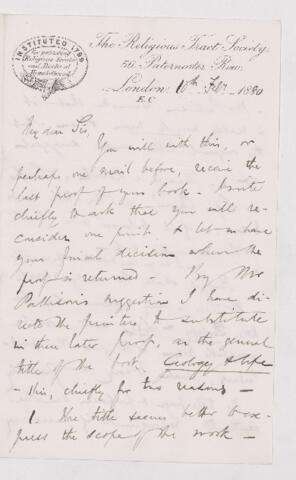 INSTITUTED 1799
The Religious Tract Society,
56 Paternoster Row,
London, 10th Feby 1880
E.C.
My dear Sir,
You will with this, or
perhaps one mail before, receive the
last proof of your book. I write
chiefly to ask that you will re-
consider one point & let me have
your final decision when the
proof is returned – By Mr
Pattison's suggestion I have di-
rected the printers to substitute
in their later proof, as the general
title of the book Geology & Life
– this, chiefly for two reasons –
1. The title seems better to ex-
press the scope of the work –